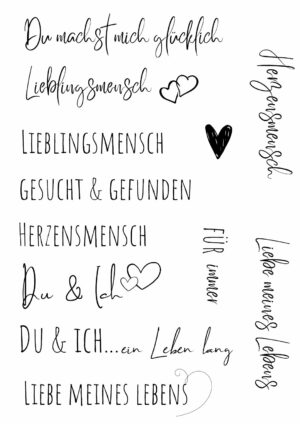 Du machst mich glücklich
Lieblingsmensch
LIEBLINGSMENSCH
GESUCHT & GEFUNDEN
HERZENSMENSCH
Du & Ich
DU & ICH...ein Leben lang
LIEBE MEINES LEBENS
Herzensmensch
FÜR immer
Liebe meines Lebens